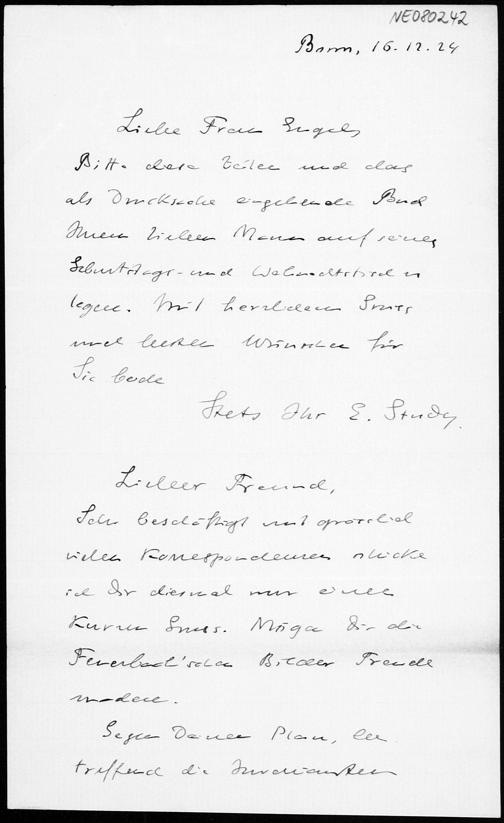 NE080242
Bonn, 16.12.24
Liebe Frau Engel,
Bitte diese Zeilen und das
als Drucksache eingehende Bild
Ihrem lieben Mann auf seinen
Geburtstags- und Weihnachtstisch zu
legen. Mit herzlichem Gruss
und besten Wünschen für
Sie beide
Stets Ihr E. Study.
Lieber Freund,
Sehr beschäftigt mit
vielen Korrespondenzen schicke
ich Dir diesmal nur einen
kurzen Gruss. Mögen Dir die
Feuerbach'schen Bilder Freude
machen.
Gegen Deinen Plan, be-
treffend die Invarianten